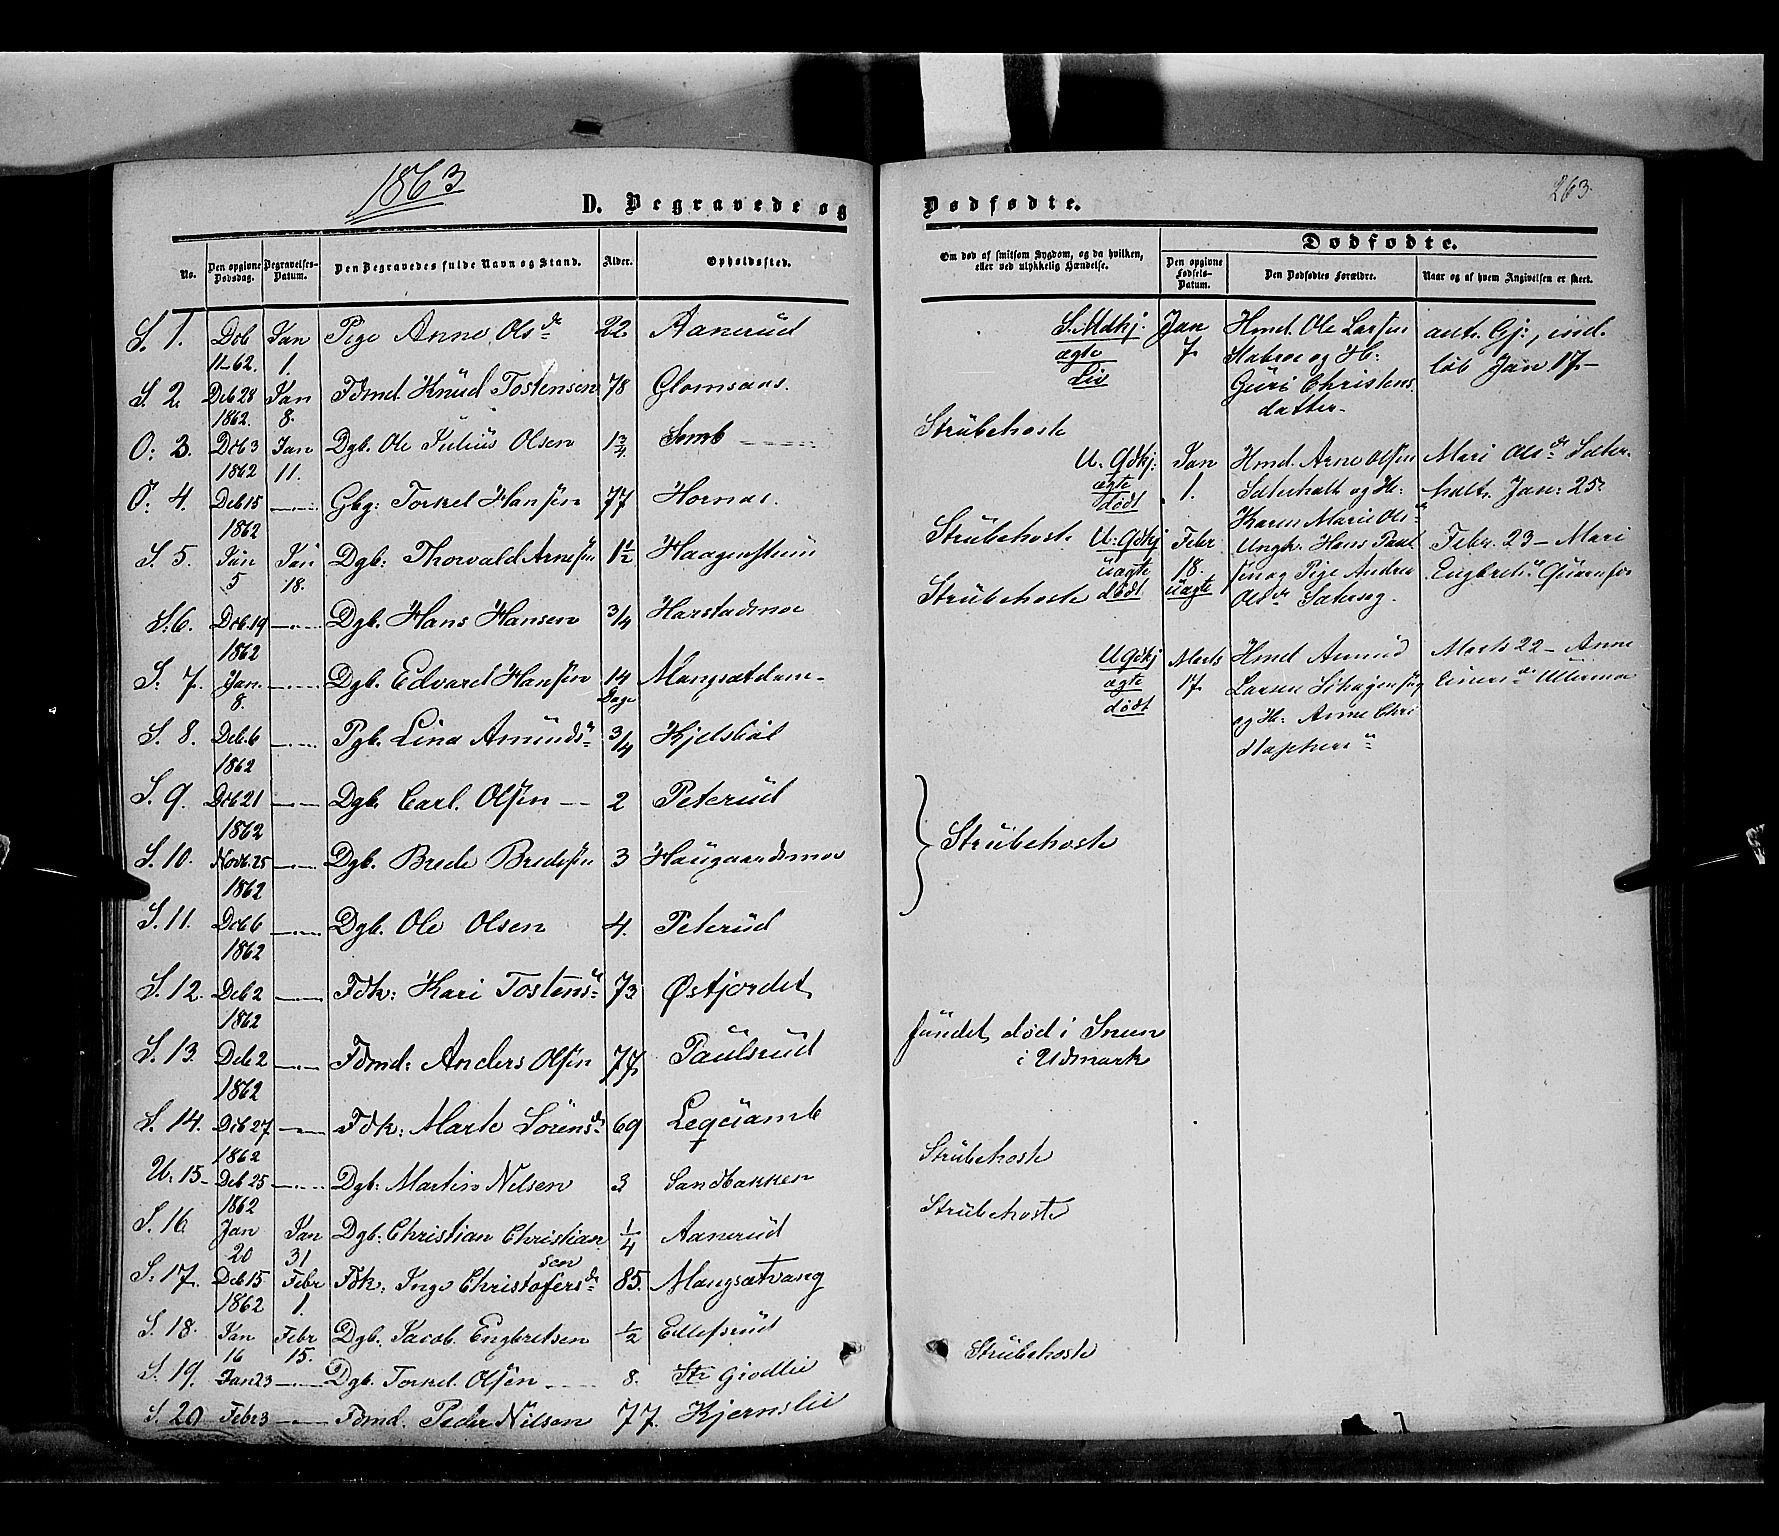 1863
263.
D. Begravede og Dødfødte.
No.
Den opgivne Dødsdag.
Begravelses-Datum.
Den Begravedes fulde Navn og Stand.
Alder.
Opholdssted.
Om død af smitsom Sygdom, og da hvilken, eller ved ulykkelig Hændelse.
Dødfødte.
Den opgivne Fødsels-Datum.
Den Dødfødtes Forældre.
Naar og af hvem Angivelsen er skeet.
S. 1. Deb 11-62. Jan 1. Pige Anne Olsdr 22 Aanerud
S. 2. Deb 28 1862. Jan 8. Fdmd. Knud Tostensen 78 Glomsaas.
O: 3. Deb 3 1862 Jan 11. Dgb. Ole Julius Olsen 1 3/4 Semb
Strubehoste
O: 4. Deb 15 1862 Gbg: Torkel Hansen 77 Hornas.
S. 5. Jan 5 Jan 18. Dgb: Thorvald Arnesen 1 1/2 Haagenstuen
Strubehoste
S: 6. Deb. 19 1862 Dgb. Hans Hansen 3/4 Harstadmoe
Strubehoste
S: 7. Jan. 8. Dgb. Edvard Hansen 14 Dage Mangsætdam
S. 8. Deb. 6 1862 Pgb. Lina Amunds 3/4 Kjelsbøl
S. 9. Deb 21 1862 Dgb. Carl. Olsen 2 Peterud
S. 10. Novb. 25 1862 Dgb. Brede Bredesen 3 Haugaardsmoe
Strubehoste
S. 11. Deb 6 1862 Dgb. Ole Olsen 4. Peterud
S. 12. Deb 2 1862 Fdk: Kari Tostens 73 Østjordet
S. 13. Deb 2 1862 Fdmd: Anders Olsen 77 Paulsrud
fundet død i Sneen
i Udmark
S. 14. Deb 27 1862 Fdk: Marte Sörensdr 69
U: 15 Deb 25 1862 Dgb: Martin Nilsen 3 Sandbakken
Strubehoste
S. 16. Jan 20 Jan 31 Dgb: Christian Christiansen 1/4 Aanerud
Strubehoste
S: 17. Deb 15 1862 Febr 1. Fdk: Inge Christofersdr 85. Mangsætvang
S. 18. Jan 16 Febr 15. Dgb. Jacob. Engbretsen 1/2 Ellefsrud
S. 19. Jan 23 Dgb. Torkel Olsen 8. Str Gjødlie
Strubehoste
S. 20 Febr 3 Fdmd. Peder Nilsen 77. Kjernslie
S. Mdkj. ægte Liv
Jan 7.
Hmd. Ole Larsen
og H:
Guri Christens
datter
ant. Gj:, ind.
løb Jan 17.
U. Gdkj. ægte dödt
Jan 1.
Hmd. Arne Olsen
Sæterholt og H:
Karen Marie Ols
Mari Olsdr Sæter
holt. Jan: 25
U: Gdkj uægte dödt
Febr 18. uægte
Ungk. Hans Paul
sen og Pige Andrea
Olsdr Sæteseg.
Febr. 23 Mari
Engbrets
U Gdkj ægte dödt
Marts 17.
Hmd Amund
Larsen
og H: Anne Chri
stophers
Marts 22 Anne
Ullermoe